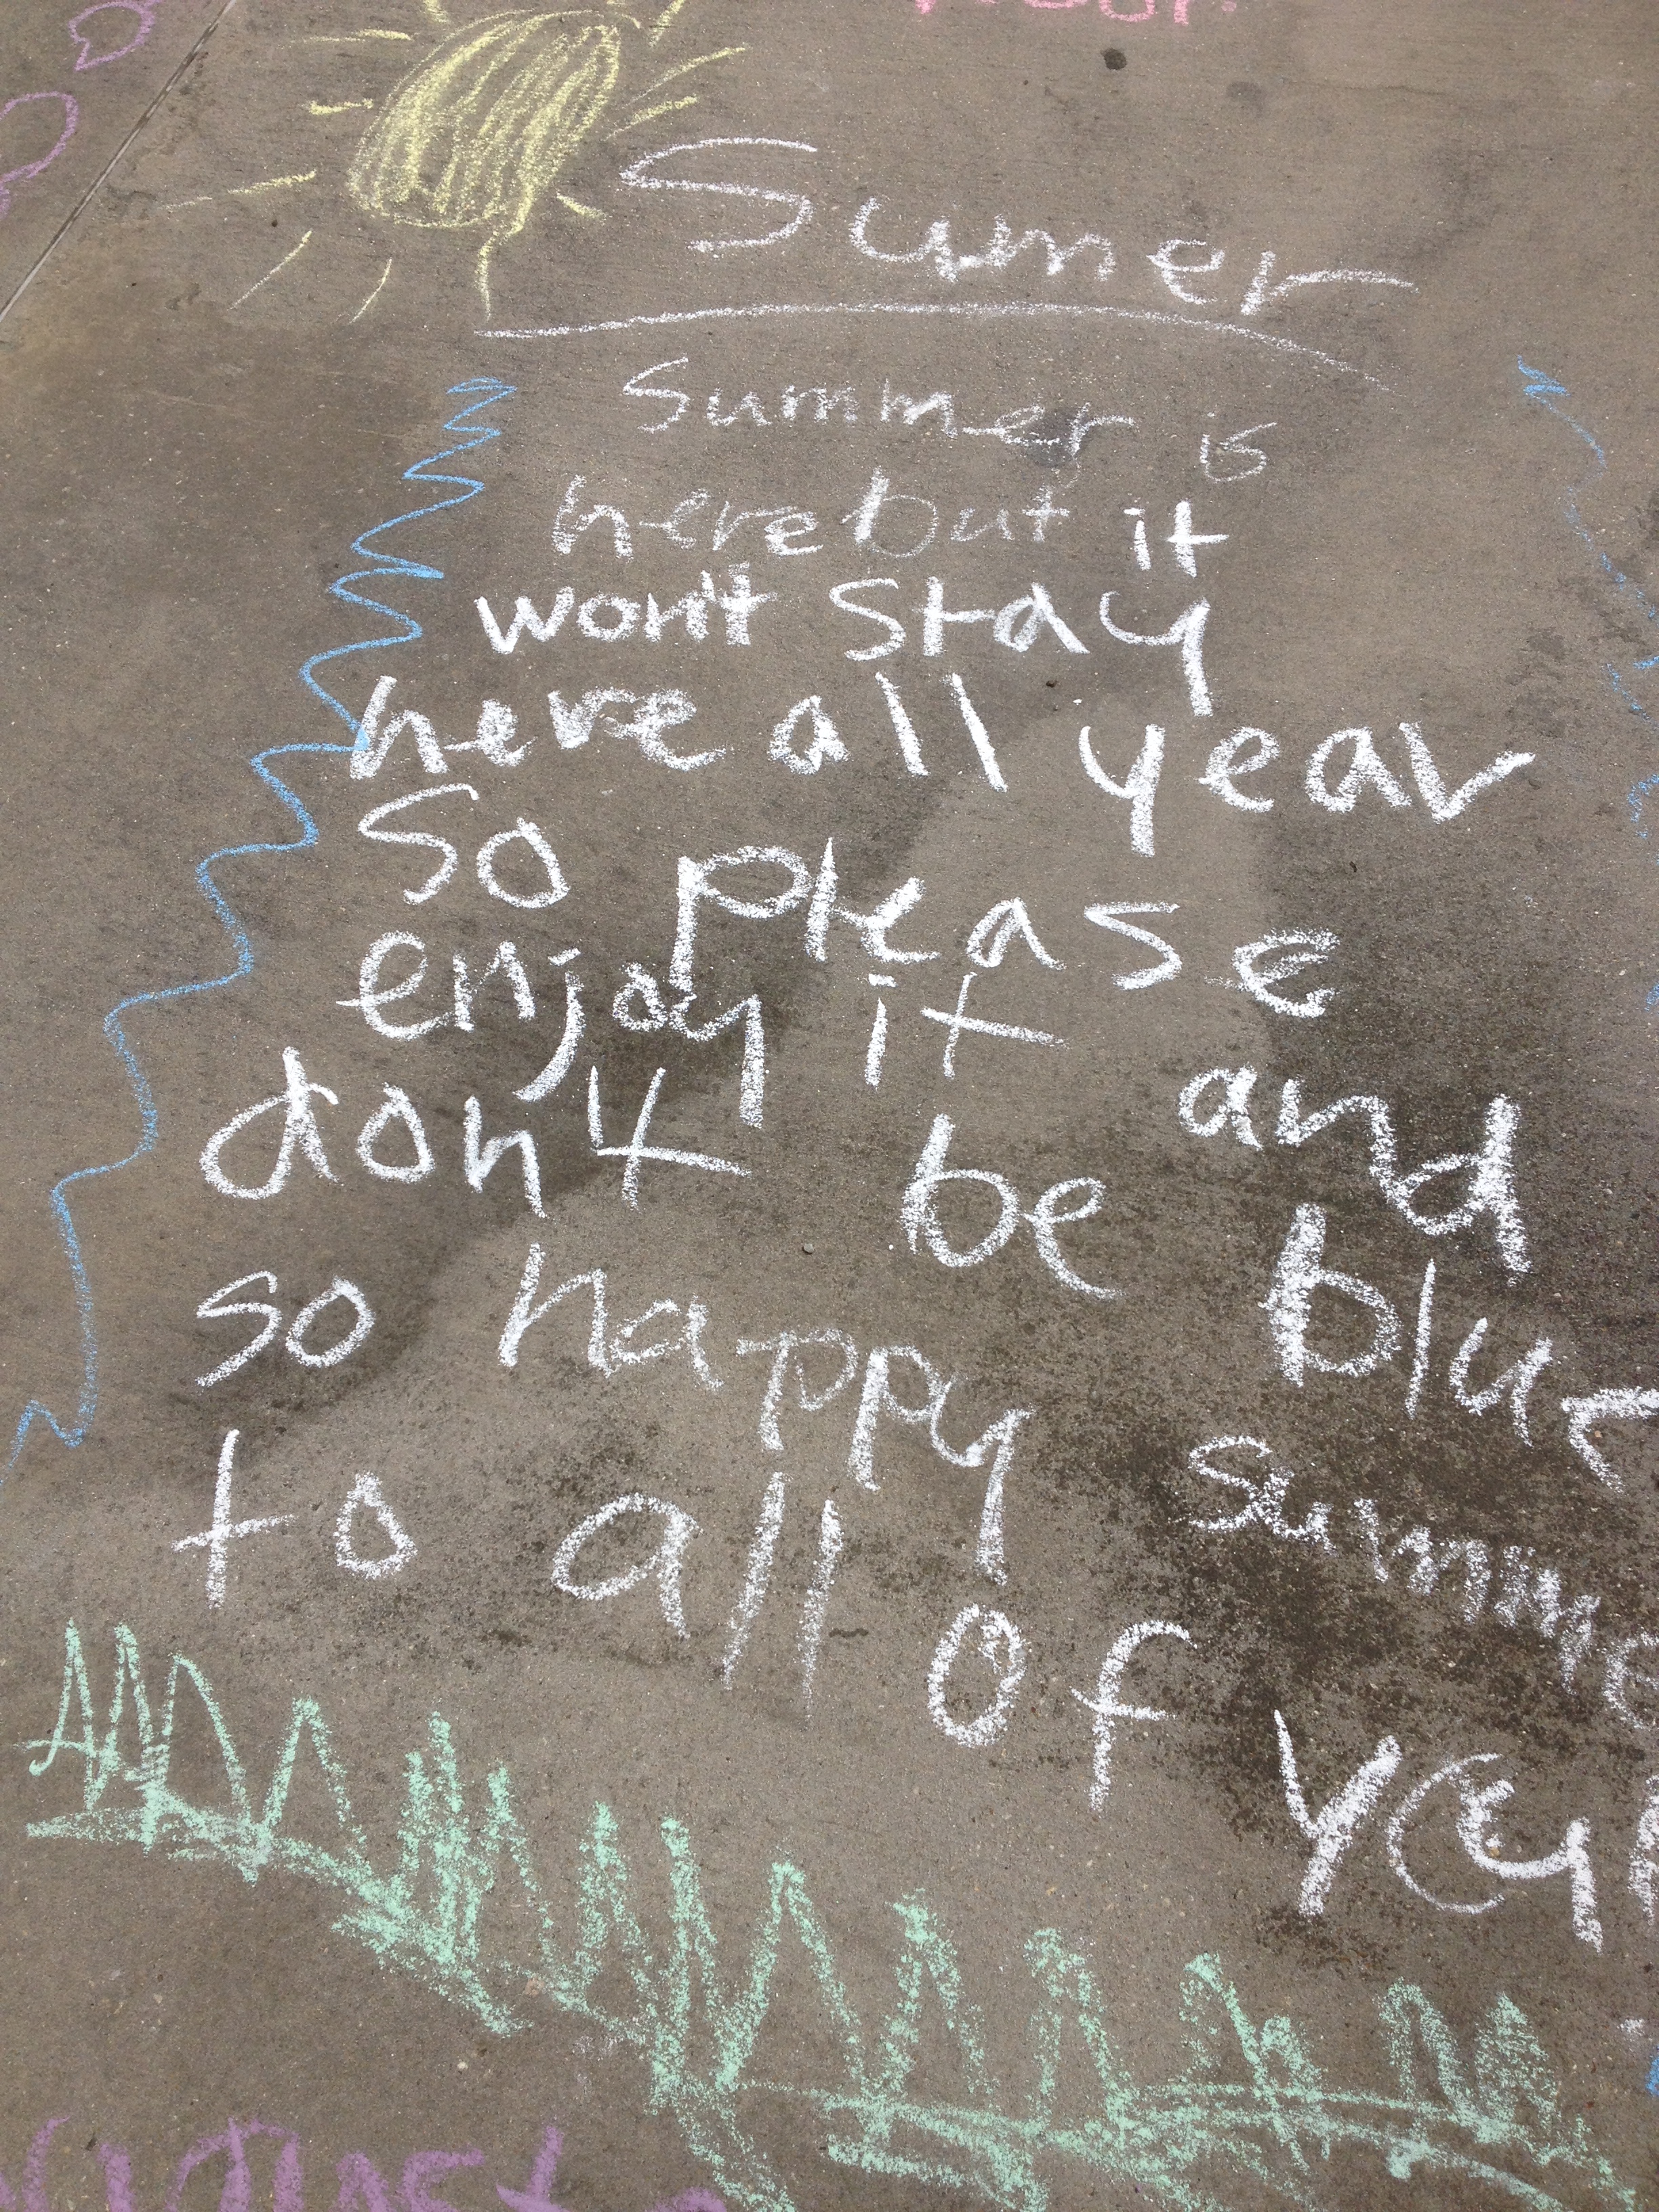 Sumer
Summer is
here but it
won't stay
here all year
So please
enjoy it and
don't be blue
so happy Summe
to all of